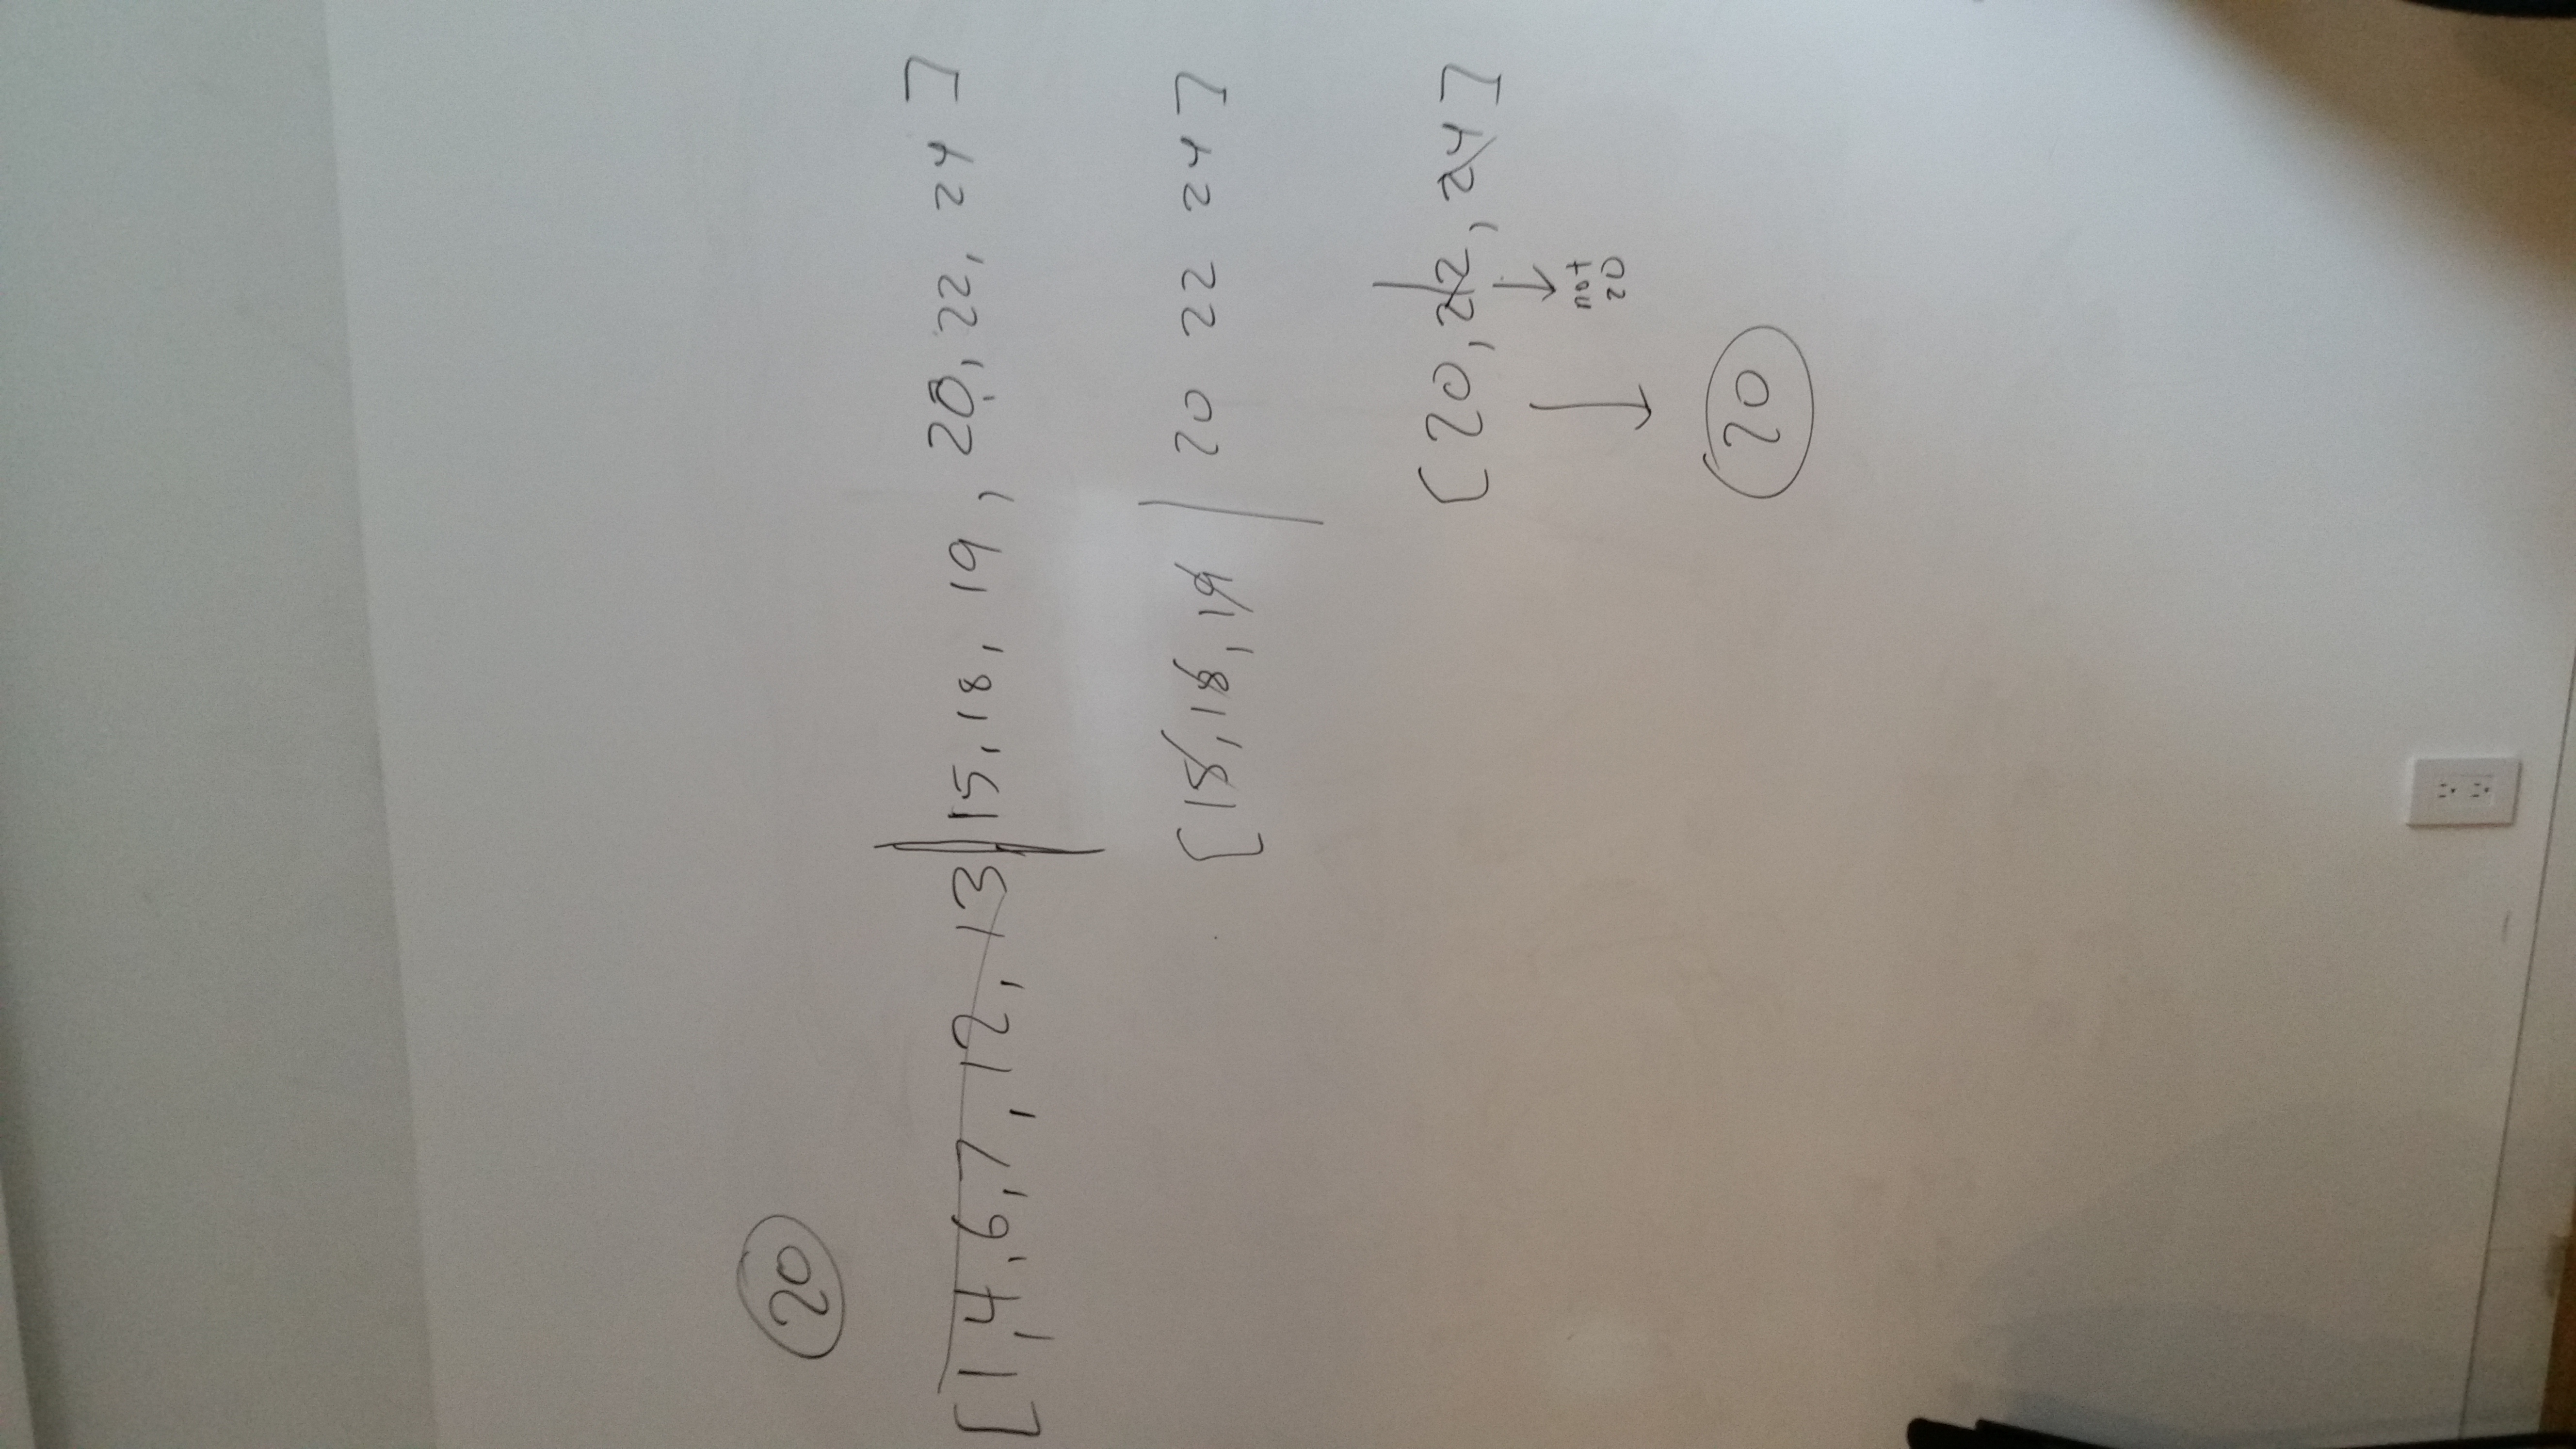 20
[1,4,6,7,12,13|15,18,19,20,22,24]
[15,18,19|20 22 24]
[20,22,24]
not
20
20